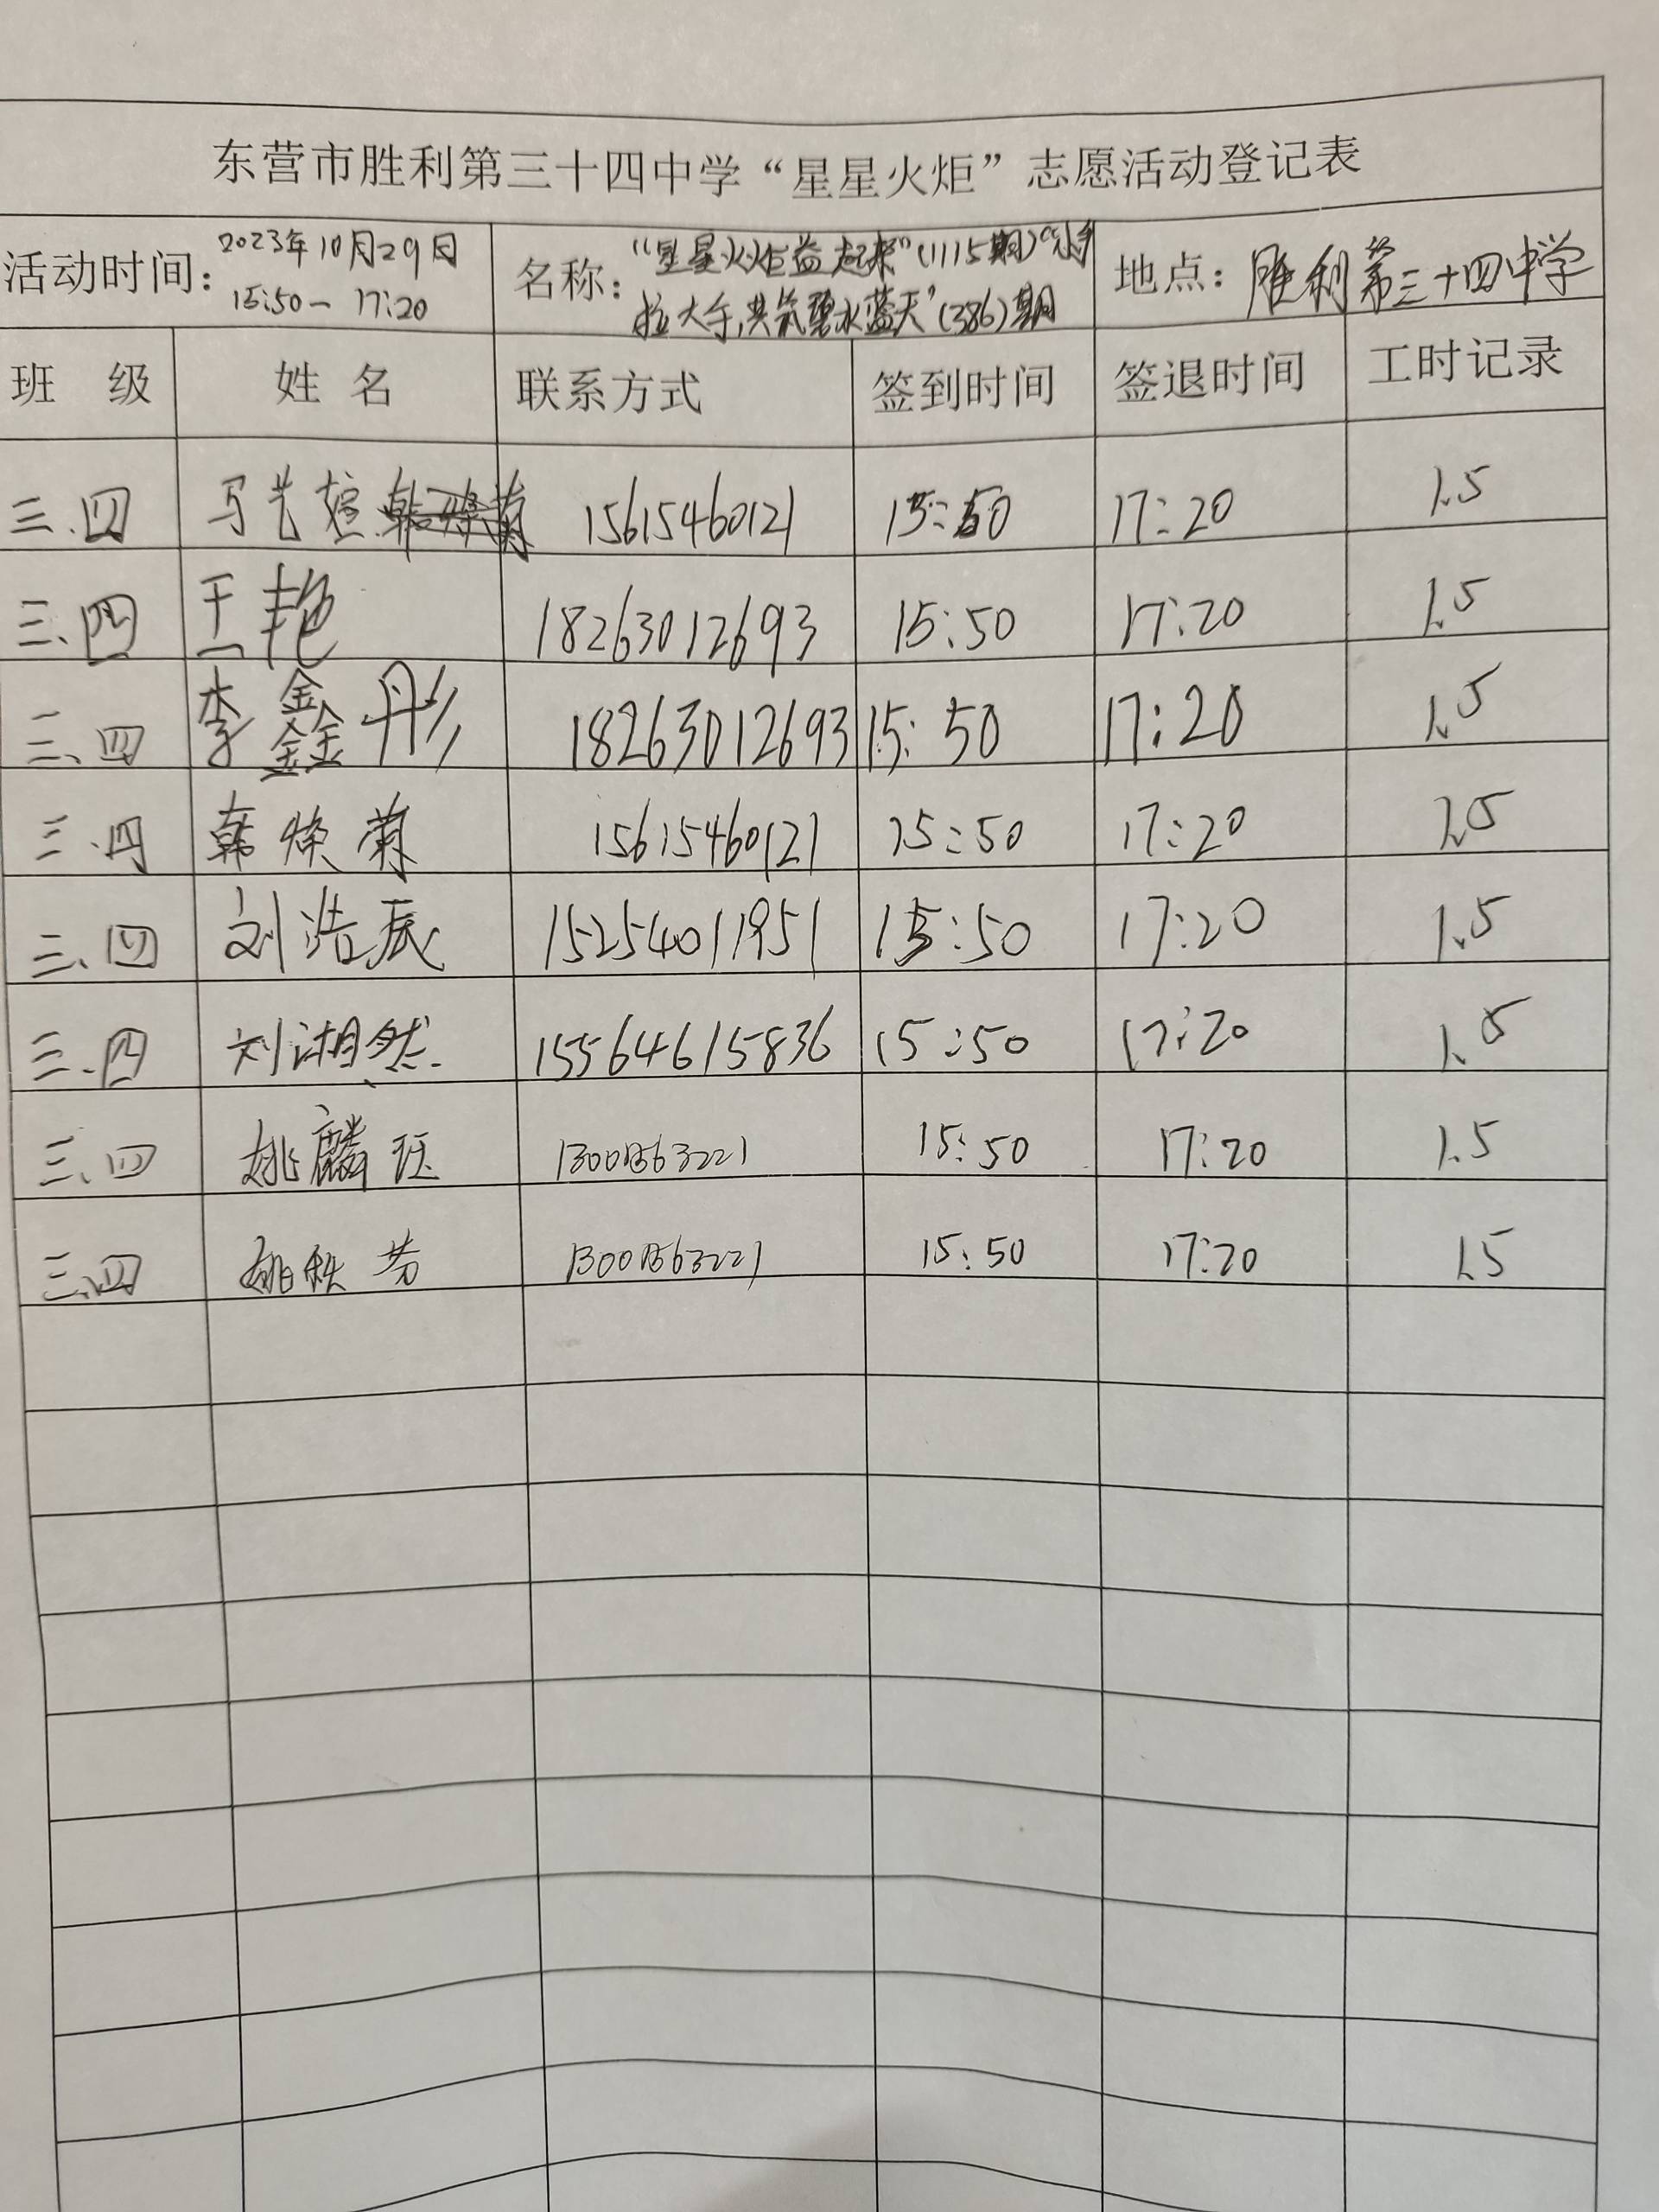 东营市胜利第三十四中学“星星火炬”志愿活动登记表
活动时间：2023年10月29日 15:50— 17:20 名称：“星星火炬益起来”(1115期)“小手拉大手,共筑碧水蓝天”(386)期 地点：胜利第三十四中学
班 级 姓 名 联系方式 签到时间 签退时间 工时记录
三.四 马艺煊 15615460121 15:50 17:20 1.5
三、四 王艳 18263012693 15:50 17:20 1.5
三、四 李鑫彤 18263012693 15:50 17:20 1.5
三.四 韩焕菊 15615460121 15:50 17:20 1.5
三、四 刘浩辰 15254011951 15:50 17:20 1.5
三.四 刘湘然 15564615836 15:50 17:20 1.5
三、四 姚麟珏 15:50 17:20 1.5
三.四 姚秋芳 15:50 17:20 1.5